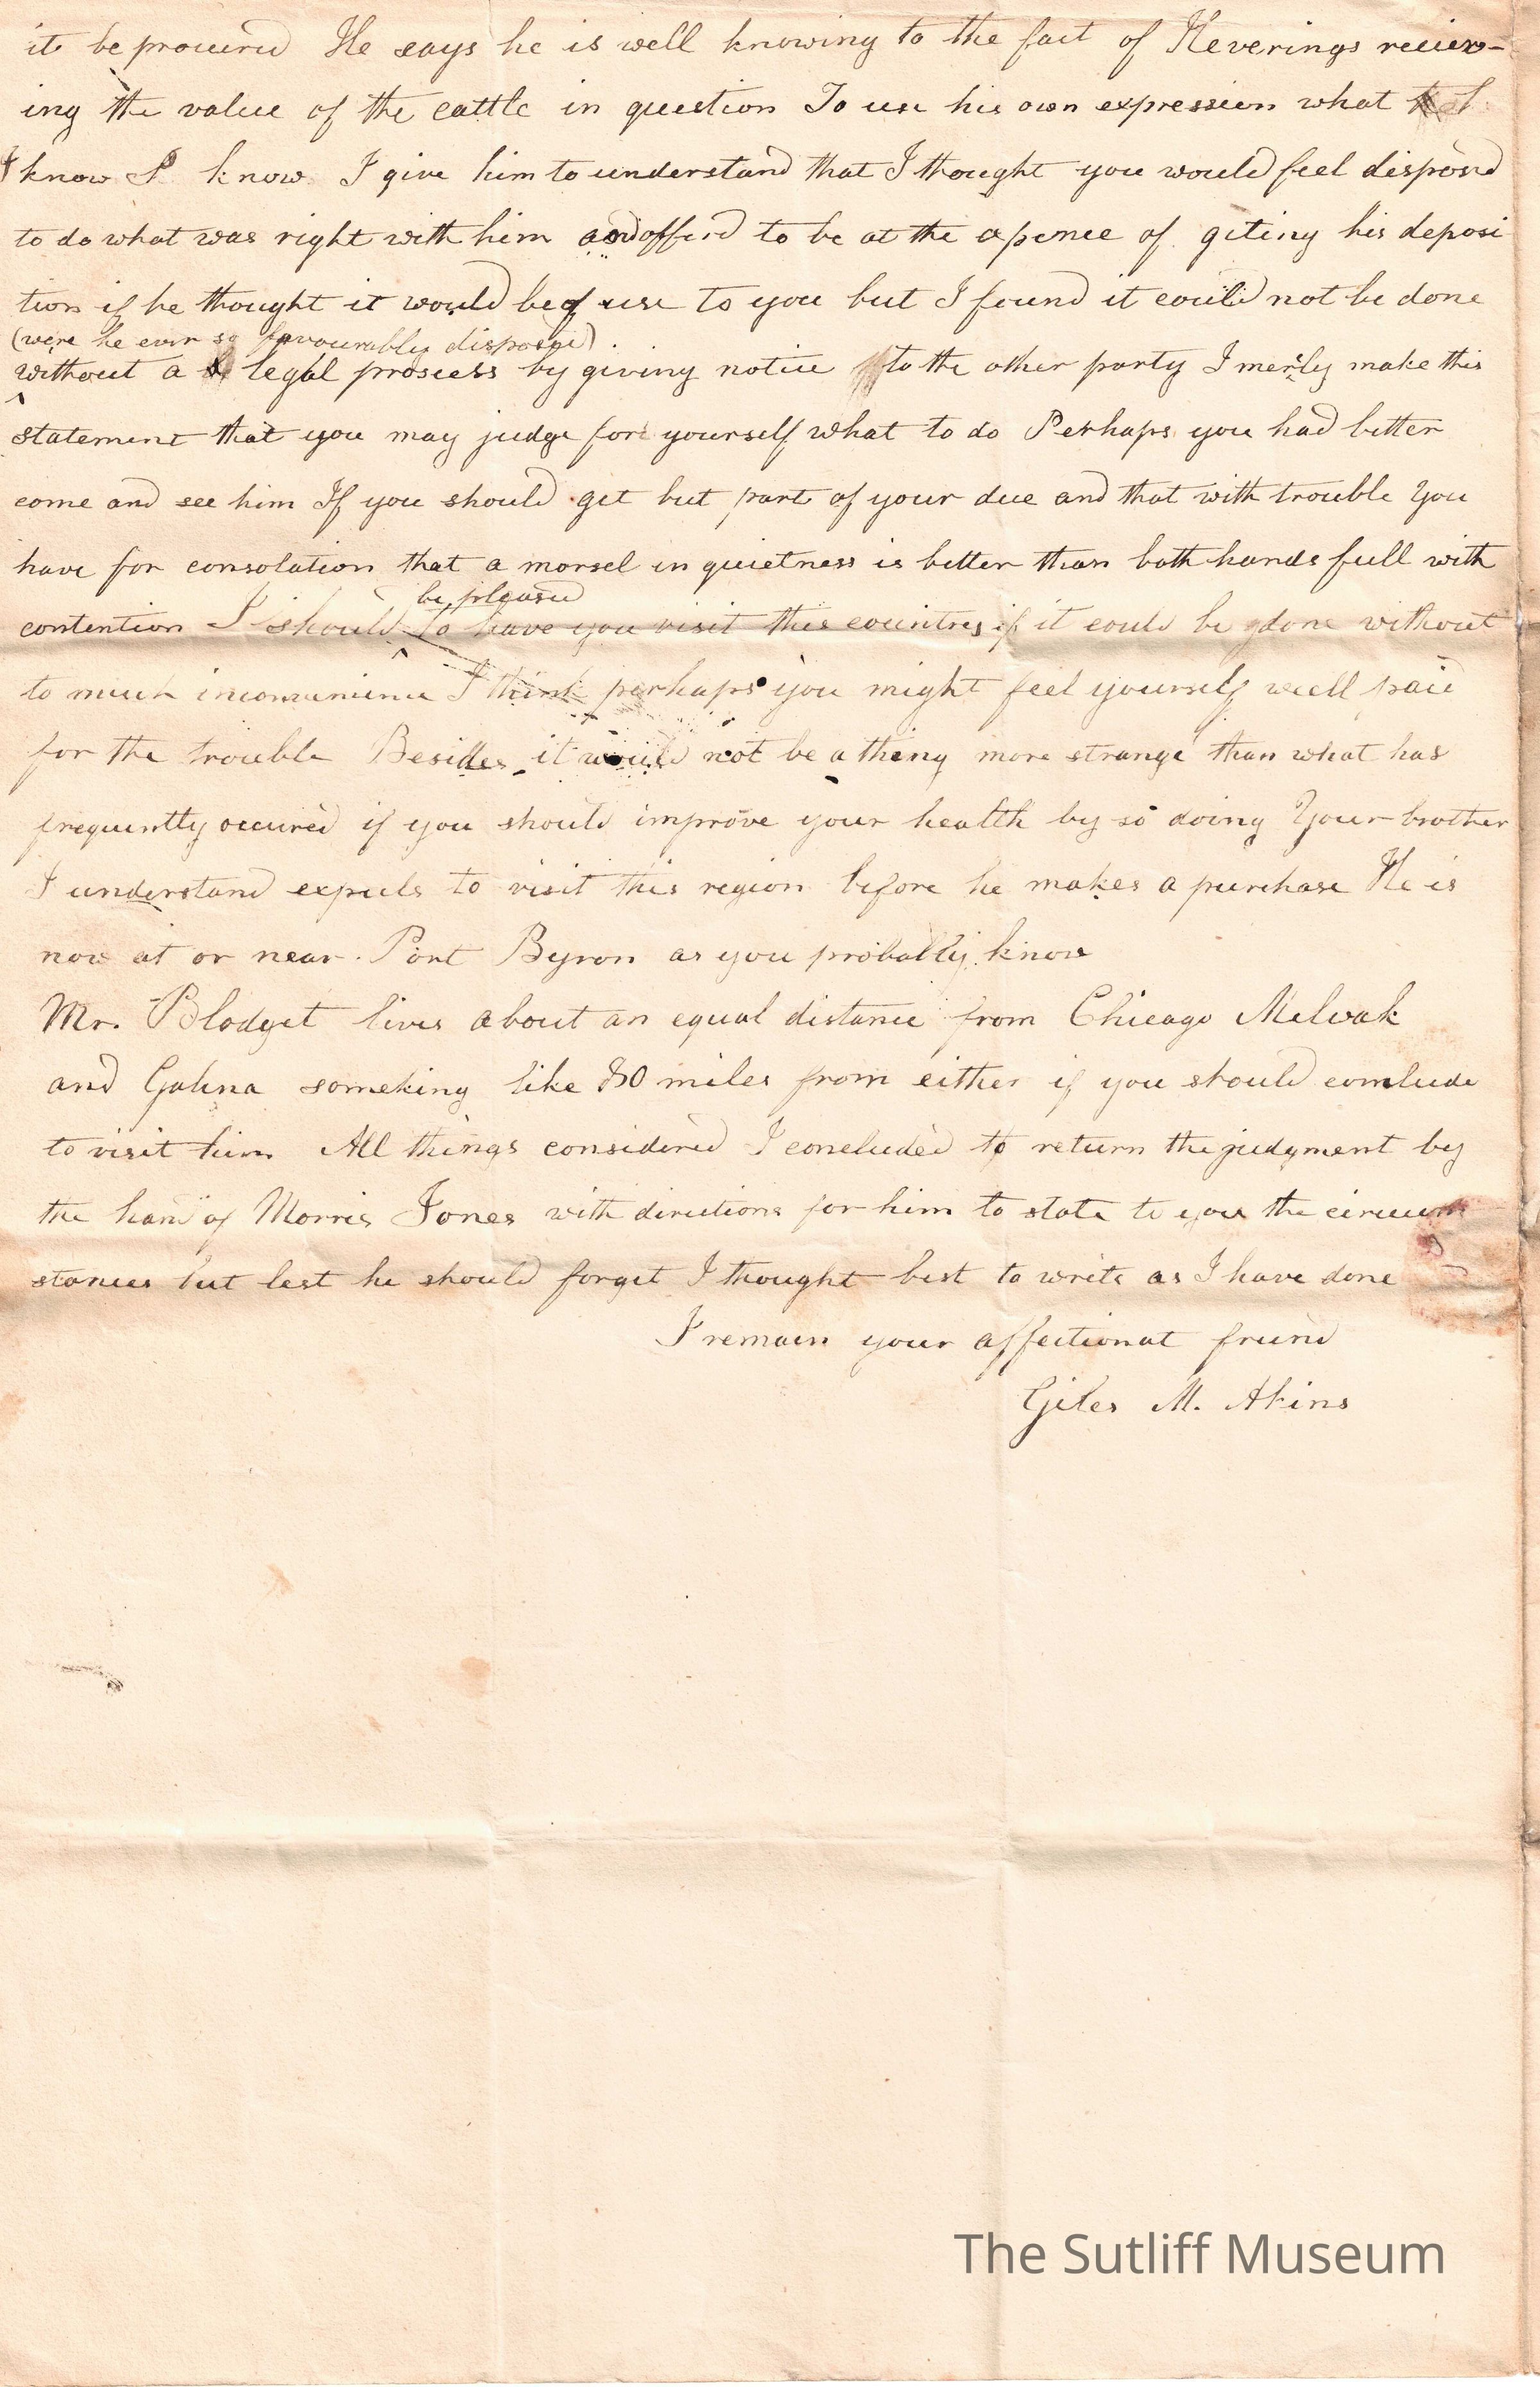 it be procured He says he is well knowing to the fact of Keverings reciev-
ing the value of the cattle in question To use his own expression what I
I know I know I give him to understand that I thought you would feel disposed
to do what was right with him and offerd to be at the expence of geting his deposi
tion if he thought it would be of use to you but I found it could not be done
(were he ever so favourably disposed)
without a legal proscess by giving notice to the other party I merly make this
statement that you may judge for yourself what to do Perhaps you had better
come and see him If you should get but part of your due and that with trouble You
have for consolation that a morsel in quietness is better than both hands full with
be pleased
contention I should to have you visit this country if it could be done without
to much inconvenience I think perhaps you might feel yourself well paid
for the trouble Besides it would not be a thing more strange than what has
frequently occured if you should improve your health by so doing Your brother
I understand expects to visit this region before he makes a purchase He is
now at or near Port Byron as you probably know
Mr. Blodget lives about an equal distance from Chicago Melwak
and Galena someking like 80 miles from either if you should conclude
to visit him All things considered I concluded to return the judgment by
the hand of Morris Jones with directions for him to state to you the circum
stances but lest he should forget I thought best to write as I have done
I remain your affectionat friend
Giles M. Akins
The Sutliff Museum